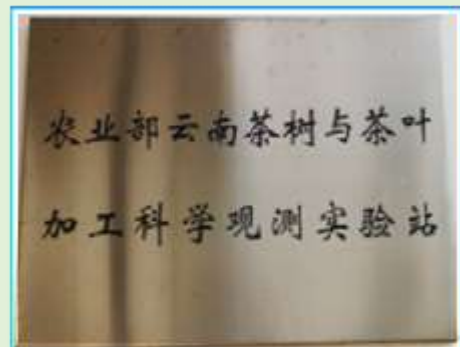 农业部云南茶树与茶叶
加工科学观测实验站